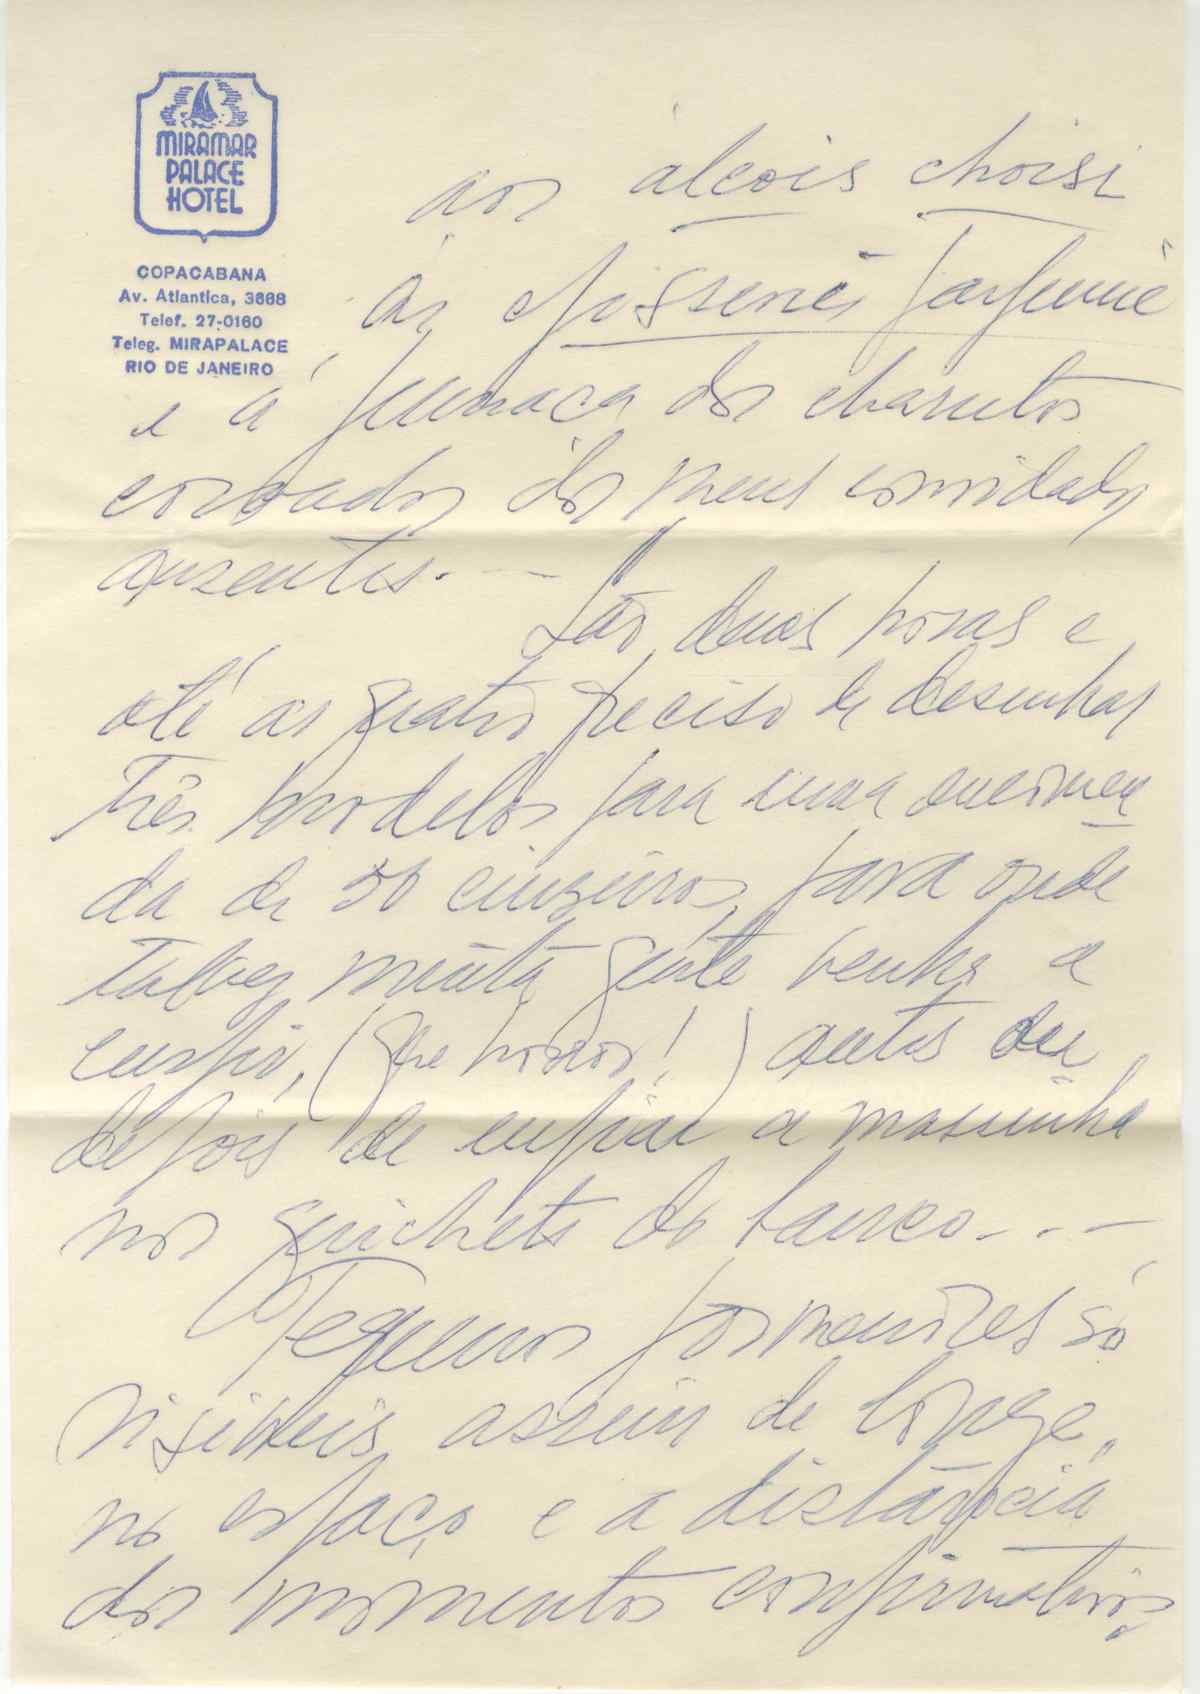 MIRAMAR
PALACE
HOTEL
COPACABANA
Av. Atlantica, 3668
Telef. 27-0160
Teleg. MIRAPALACE
RIO DE JANEIRO
aos álcois choisi
às épisseries parfumé
e á fumaça dos charutos
coroados dos meus convidados
auzentes. —
São duas horas e
até as quatro preciso de desenhar
Três modelos para uma encomen
da de 50 cinzeiros, para onde
talvez muita gente venha a
cuspir, (que horror!) antes ou
depois de enfiar a massinha
nos guichets do banco...—
Pequenos pormenores só
visiveis assim de longe,
no espaço e a distância
dos momentos confirmativos,